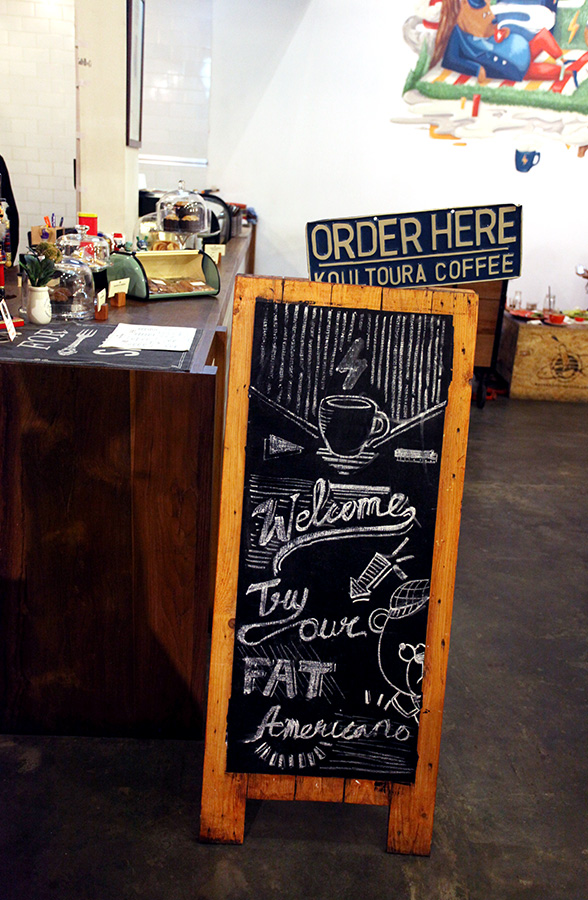 ORDER HERE
KOULTOURA COFFEE
Welcome
Try
our
FAT
Americano
FOR
S